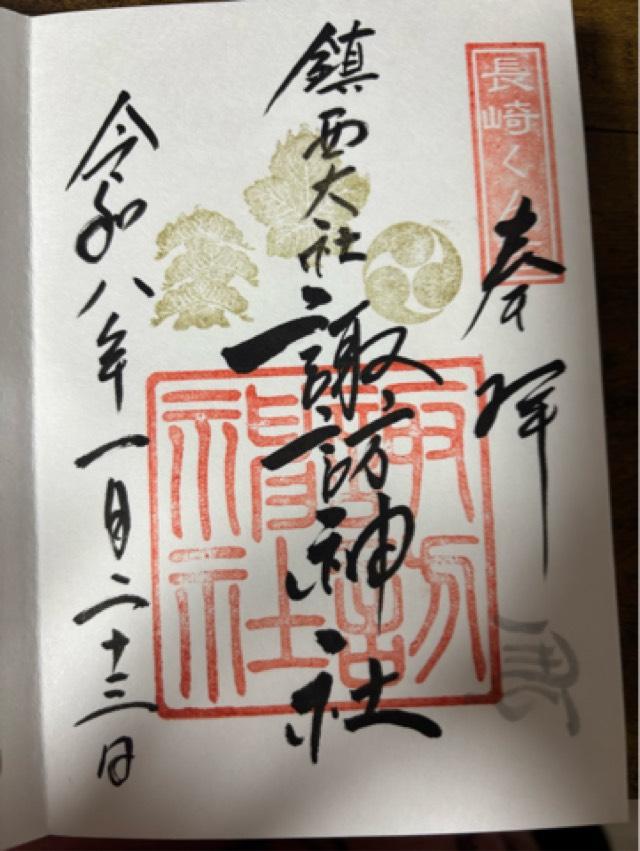 長崎くんち
奉拝
鎮西大社
諏訪神社
諏訪神社
令和八年一月二十三日